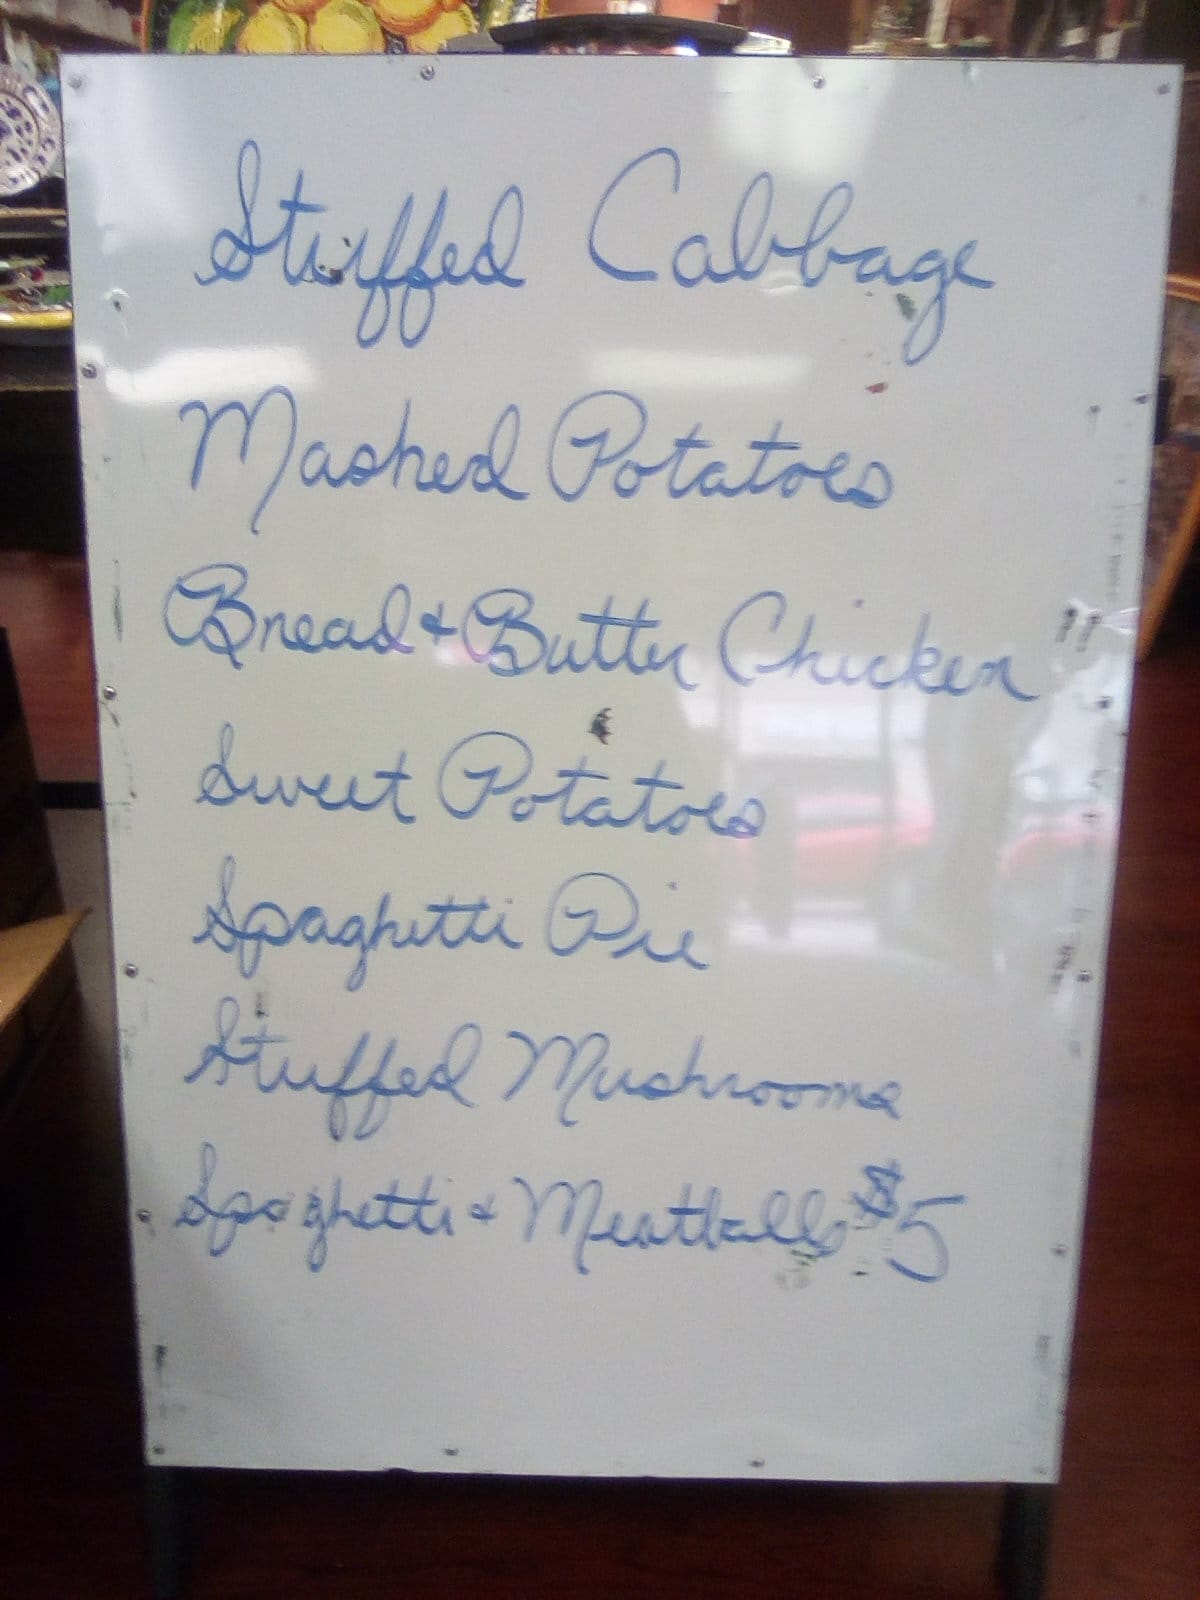 Stuffed Cabbage
Mashed Potatoes
Bread & Butter Chicken
Sweet Potatoes
Spaghetti Pie
Stuffed Mushrooms
Spaghetti & Meatballs $5